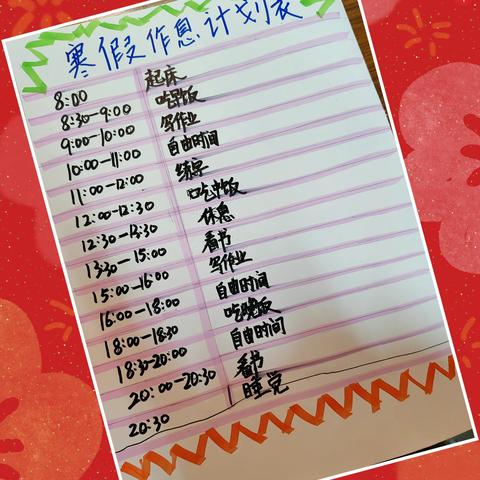 寒假作息计划表
8:00 起床
8:30-9:00 吃早饭
9:00-10:00 写作业
10:00-11:00 自由时间
11:00-12:00 练字
12:00-12:30 吃中饭
12:30-13:30 休息
13:30-15:00 看书
15:00-16:00 写作业
16:00-18:00 自由时间
18:00-18:30 吃晚饭
18:30-20:00 自由时间
20:00-20:30 看书
20:30 睡觉